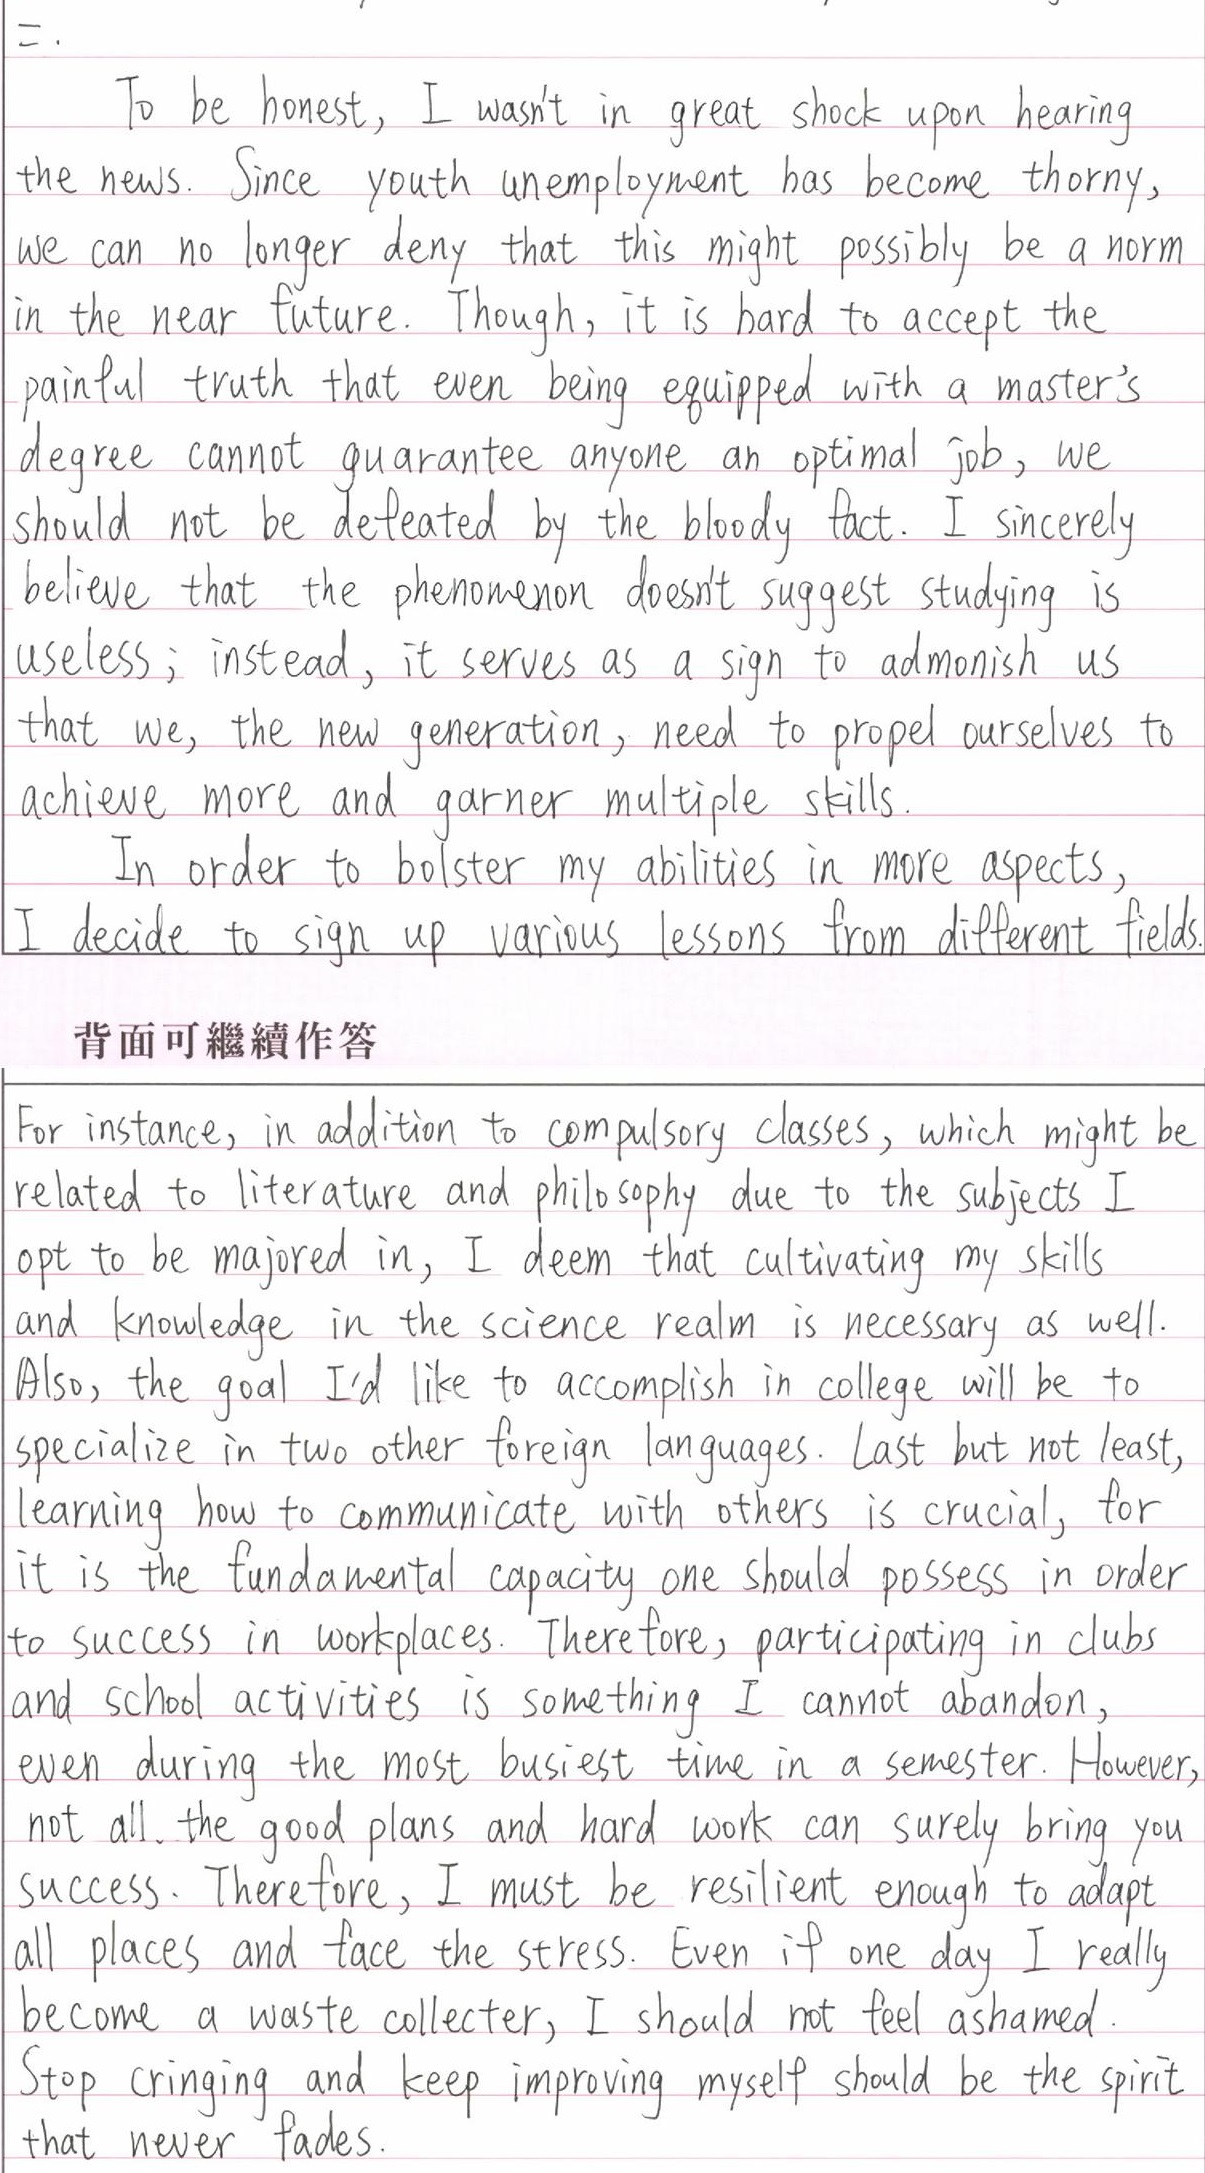 二.
To be honest, I wasn't in great shock upon hearing
the news. Since youth unemployment has become thorny,
we can no longer deny that this might possibly be a norm
in the near future. Though, it is hard to accept the
painful truth that even being equipped with a master's
degree cannot guarantee anyone an optimal job, we
should not be defeated by the bloody fact. I sincerely
believe that the phenomenon doesn't suggest studying is
useless; instead, it serves as a sign to admonish us
that we, the new generation, need to propel ourselves to
achieve more and garner multiple skills.
In order to bolster my abilities in more aspects,
I decide to sign up various lessons from different fields.
背面可繼續作答
For instance, in addition to compulsory classes, which might be
related to literature and philosophy due to the subjects I
opt to be majored in, I deem that cultivating my skills
and knowledge in the science realm is necessary as well.
Also, the goal I'd like to accomplish in college will be to
specialize in two other foreign languages. Last but not least,
learning how to communicate with others is crucial, for
it is the fundamental capacity one should possess in order
to success in workplaces. Therefore, participating in clubs
and school activities is something I cannot abandon,
even during the most busiest time in a semester. However,
not all the good plans and hard work can surely bring you
success. Therefore, I must be resilient enough to adapt
all places and face the stress. Even if one day I really
become a waste collecter, I should not feel ashamed.
Stop cringing and keep improving myself should be the spirit
that never fades.